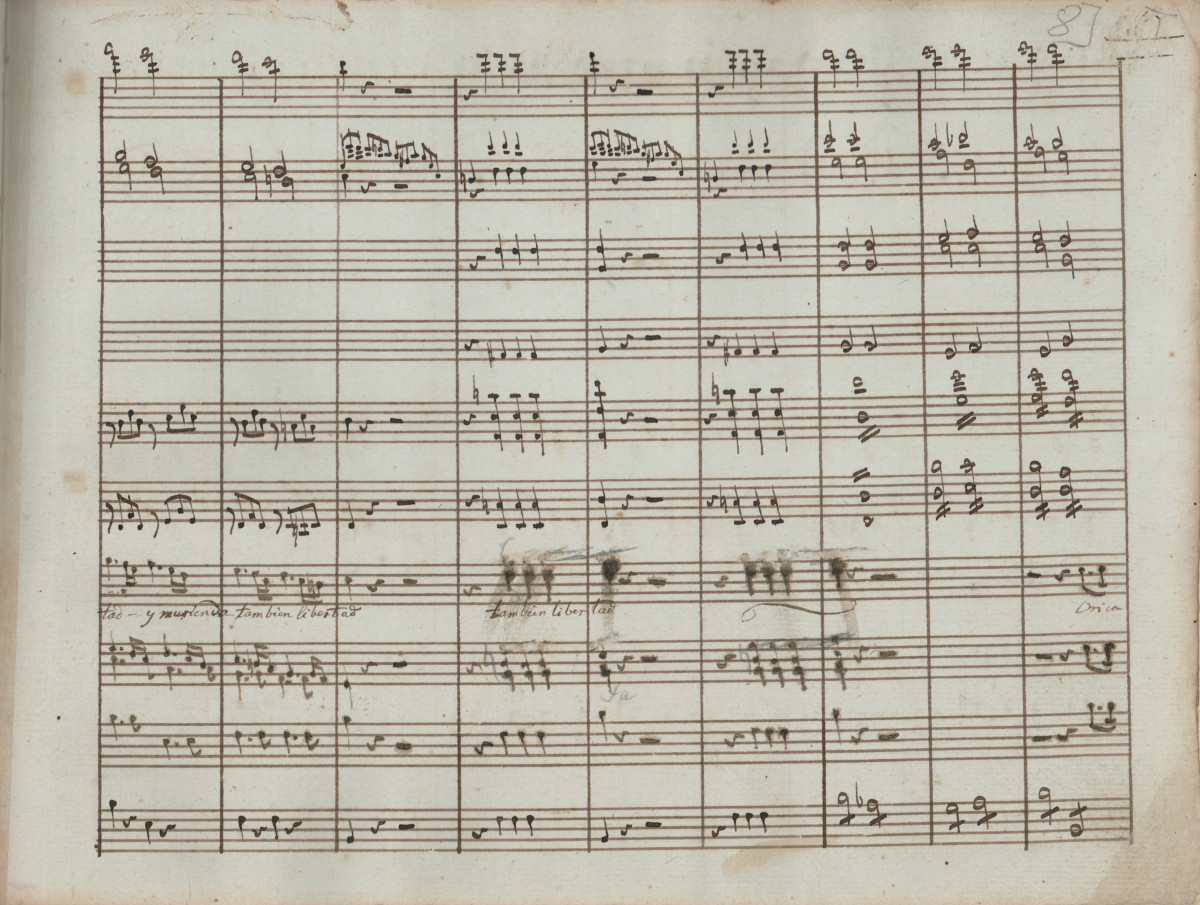 87
tad - y muriendo tambien libertad tambien libertad Orica